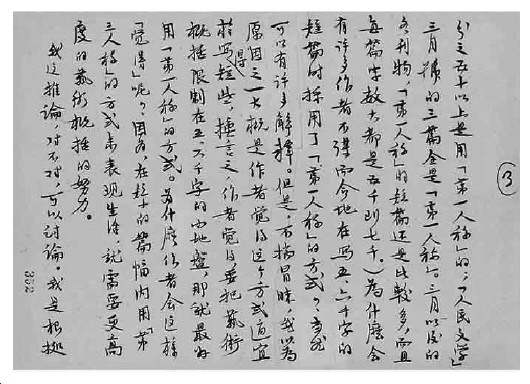 分之五十以上是用「第一人称」的；「人民文学」
三月号的三篇全是「第一人称」。三月以后的
各刊物，「第一人称」的短篇还是比较多，而且
每篇字数大都是五千到七千。）为什么会
有许多作者不谋而合地在写五、六千字的
短篇时採用了「第一人称」的方式？当然
可以有许多解释。但是，不揣冒昧，我以为
原因之一大概是作者觉得这个方式适宜
於写得短些，换言之，作者觉得要把艺术
概括限制在五、六千字的小地盘，那就最好
用「第一人称」的方式。为什么作者会这样
「觉得」呢？因为，在较小的篇幅内用「第
三人称」的方式来表现生活，就需要更高
度的艺术概括的努力。
我这推论对不对，可以讨论。我是根据
3
352